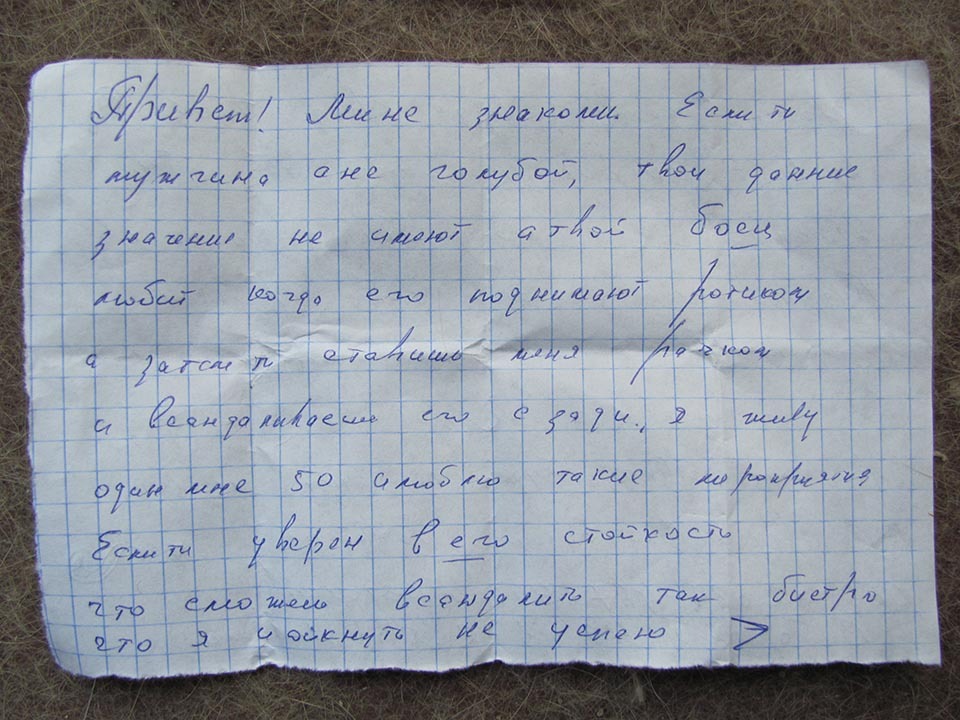 Привет! Ми не знакоми Если ти
мужчина а не голубой, твои данние
значение не имеют а твой боец
любит когда его поднимают ротиком
а затем ти ставишь меня рачком
и всандаливаеш его с зади., я живу
один мне 50 и люблю такие мероприятия
Если ти уверен в его стойкость
что сможеш всандалить так бистро
что я и ойкнуть не успею >